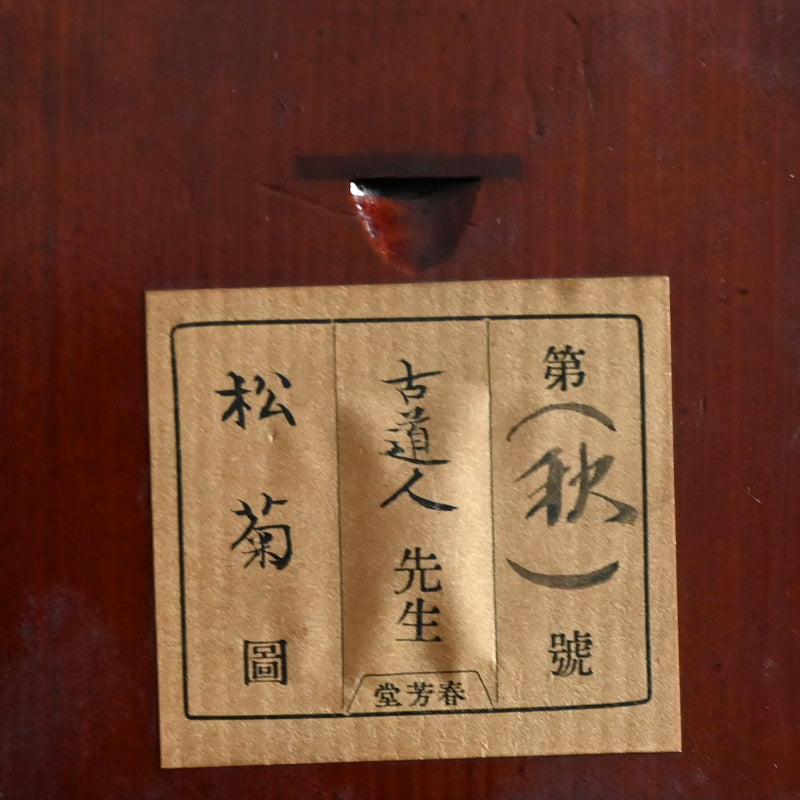 第（秋）號
古道人先生
松菊圖
春芳堂